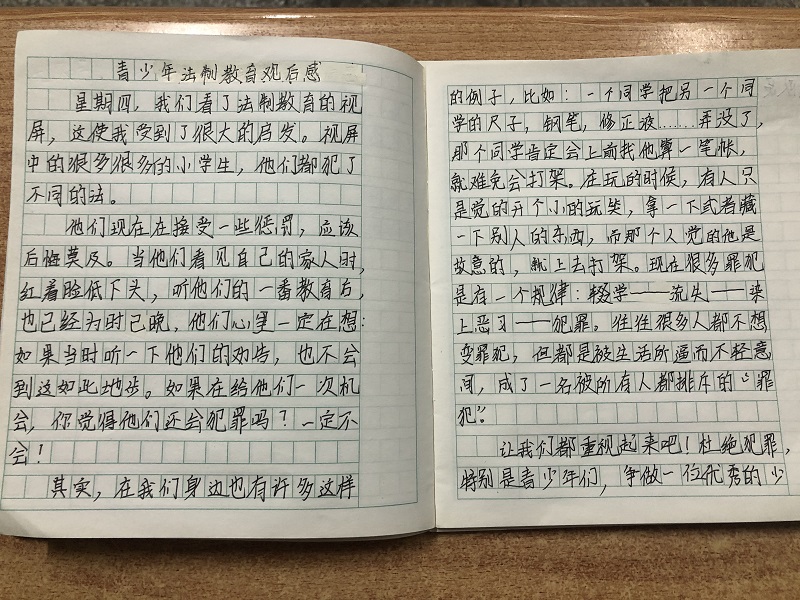 青少年法制教育观后感
星期四，我们看了法制教育的视
屏，这使我受到了很大的启发。视屏
中的很多很多的小学生，他们都犯了
不同的法。
他们现在在接受一些惩罚，应该
后悔莫及。当他们看见自己的家人时，
红着脸低下头，听他们的一番教育后，
也已经为时已晚，他们心里一定在想：
如果当时听一下他们的劝告，也不会
到这如此地步。如果在给他们一次机
会，你觉得他们还会犯罪吗？一定不
会！
其实，在我们身边也有许多这样
的例子，比如：一个同学把另一个同
学的尺子，钢笔，修正液……弄没了，
那个同学肯定会上前找他算一笔帐，
就难免会打架。在玩的时候，有人只
是觉的开个小的玩笑，拿一下或者藏
一下别人的东西，而那个人觉的他是
故意的，就上去打架。现在很多罪犯
是有一个规律：辍学——流失——染
上恶习——犯罪。往往很多人都不想
变罪犯，但都是被生活所逼而不轻意
间，成了一名被所有人都排斥的“罪
犯”。
让我们都重视起来吧！杜绝犯罪，
特别是青少年们，争做一位优秀的少